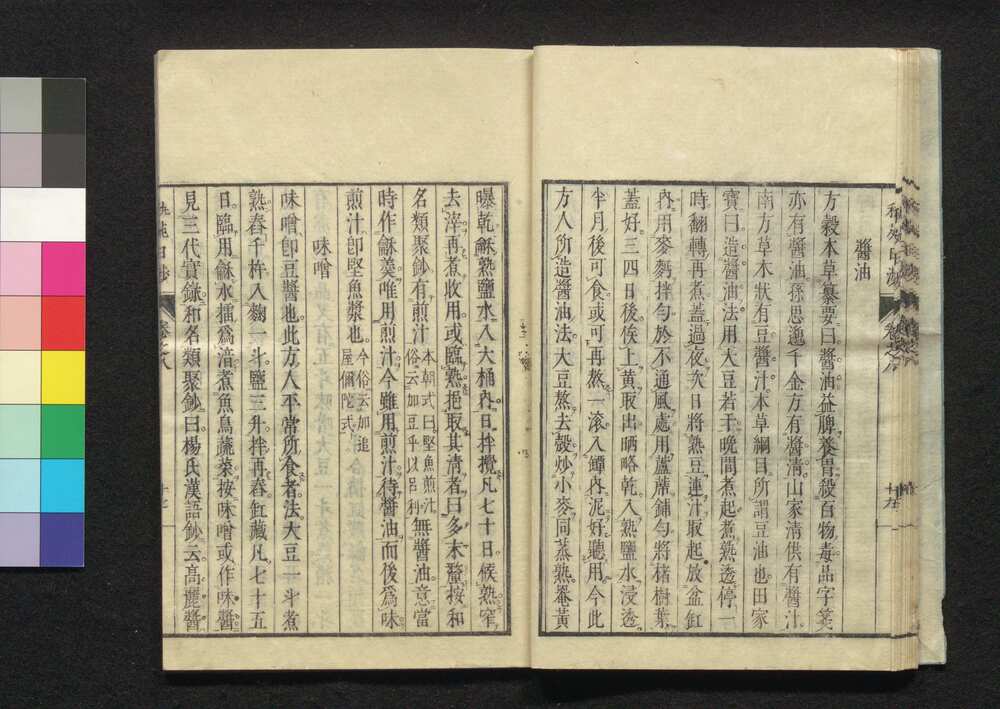 醬油
方穀本草纂要曰醬油益脾養胃殺百物毒品字箋
亦有醬油孫思邈千金方有醬清山家清供有醬汁
南方草木狀有豆醬汁本草綱目所謂豆油也田家
寶曰造醬油法用大豆若干晚間煮起煮熟透停一
時翻轉再煮蓋過夜次日將熟豆連汁取起放盆缸
內用麥麪拌勻於不通風處用蘆蓆鋪勻將楮樹葉
蓋好三四日後俟上黄取出晒略乾入熟鹽水浸透
半月後可食或可再熬一滚入罈內泥好聽用今此
方人所造醬油法大豆熬去殼炒小麥同蒸熟罨黄
曝乾龢熟鹽水入大桶內日拌攪凡七十日候熟窄
去滓再煮收用或臨熟挹取其清者曰多末鼇按和
名類聚鈔有煎汁 本朝式曰堅魚煎汁俗云加豆乎以呂利 無醬油意當
時作龢羹唯用煎汁今雖用煎汁待醬油而後爲味
煎汁卽堅魚漿也 今俗云加追屋彌陀式
味噌
味噌卽豆醬也此方人平常所食者法大豆一斗煮
熟舂千杵入麴一斗鹽三升拌再舂缸藏凡七十五
日臨用龢水擂爲湆煮魚鳥蔬菜按味噌或作味醬
見三代實錄和名類聚鈔曰楊氏漢語鈔云高麗醬
卷之八